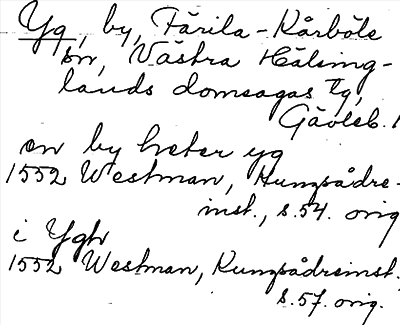 Yg, by, Färila-Kårböle
sn, Västra Hälsing-
lands domsagas tg,
Gävleb. l
en by heter yg
1552 Westman, Kungsådre-
inst., s. 54. orig
i Ygh
1552 Westman, Kungsådreinst.
s. 57. orig.